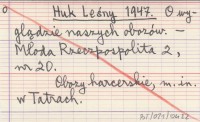 o Huk Leśny 1947. O wy-
glądzie naszych obozów. –
Młoda Rzeczpospolita 2,
nr 20.
Obozy harcerskie, m. in.
w Tatrach.